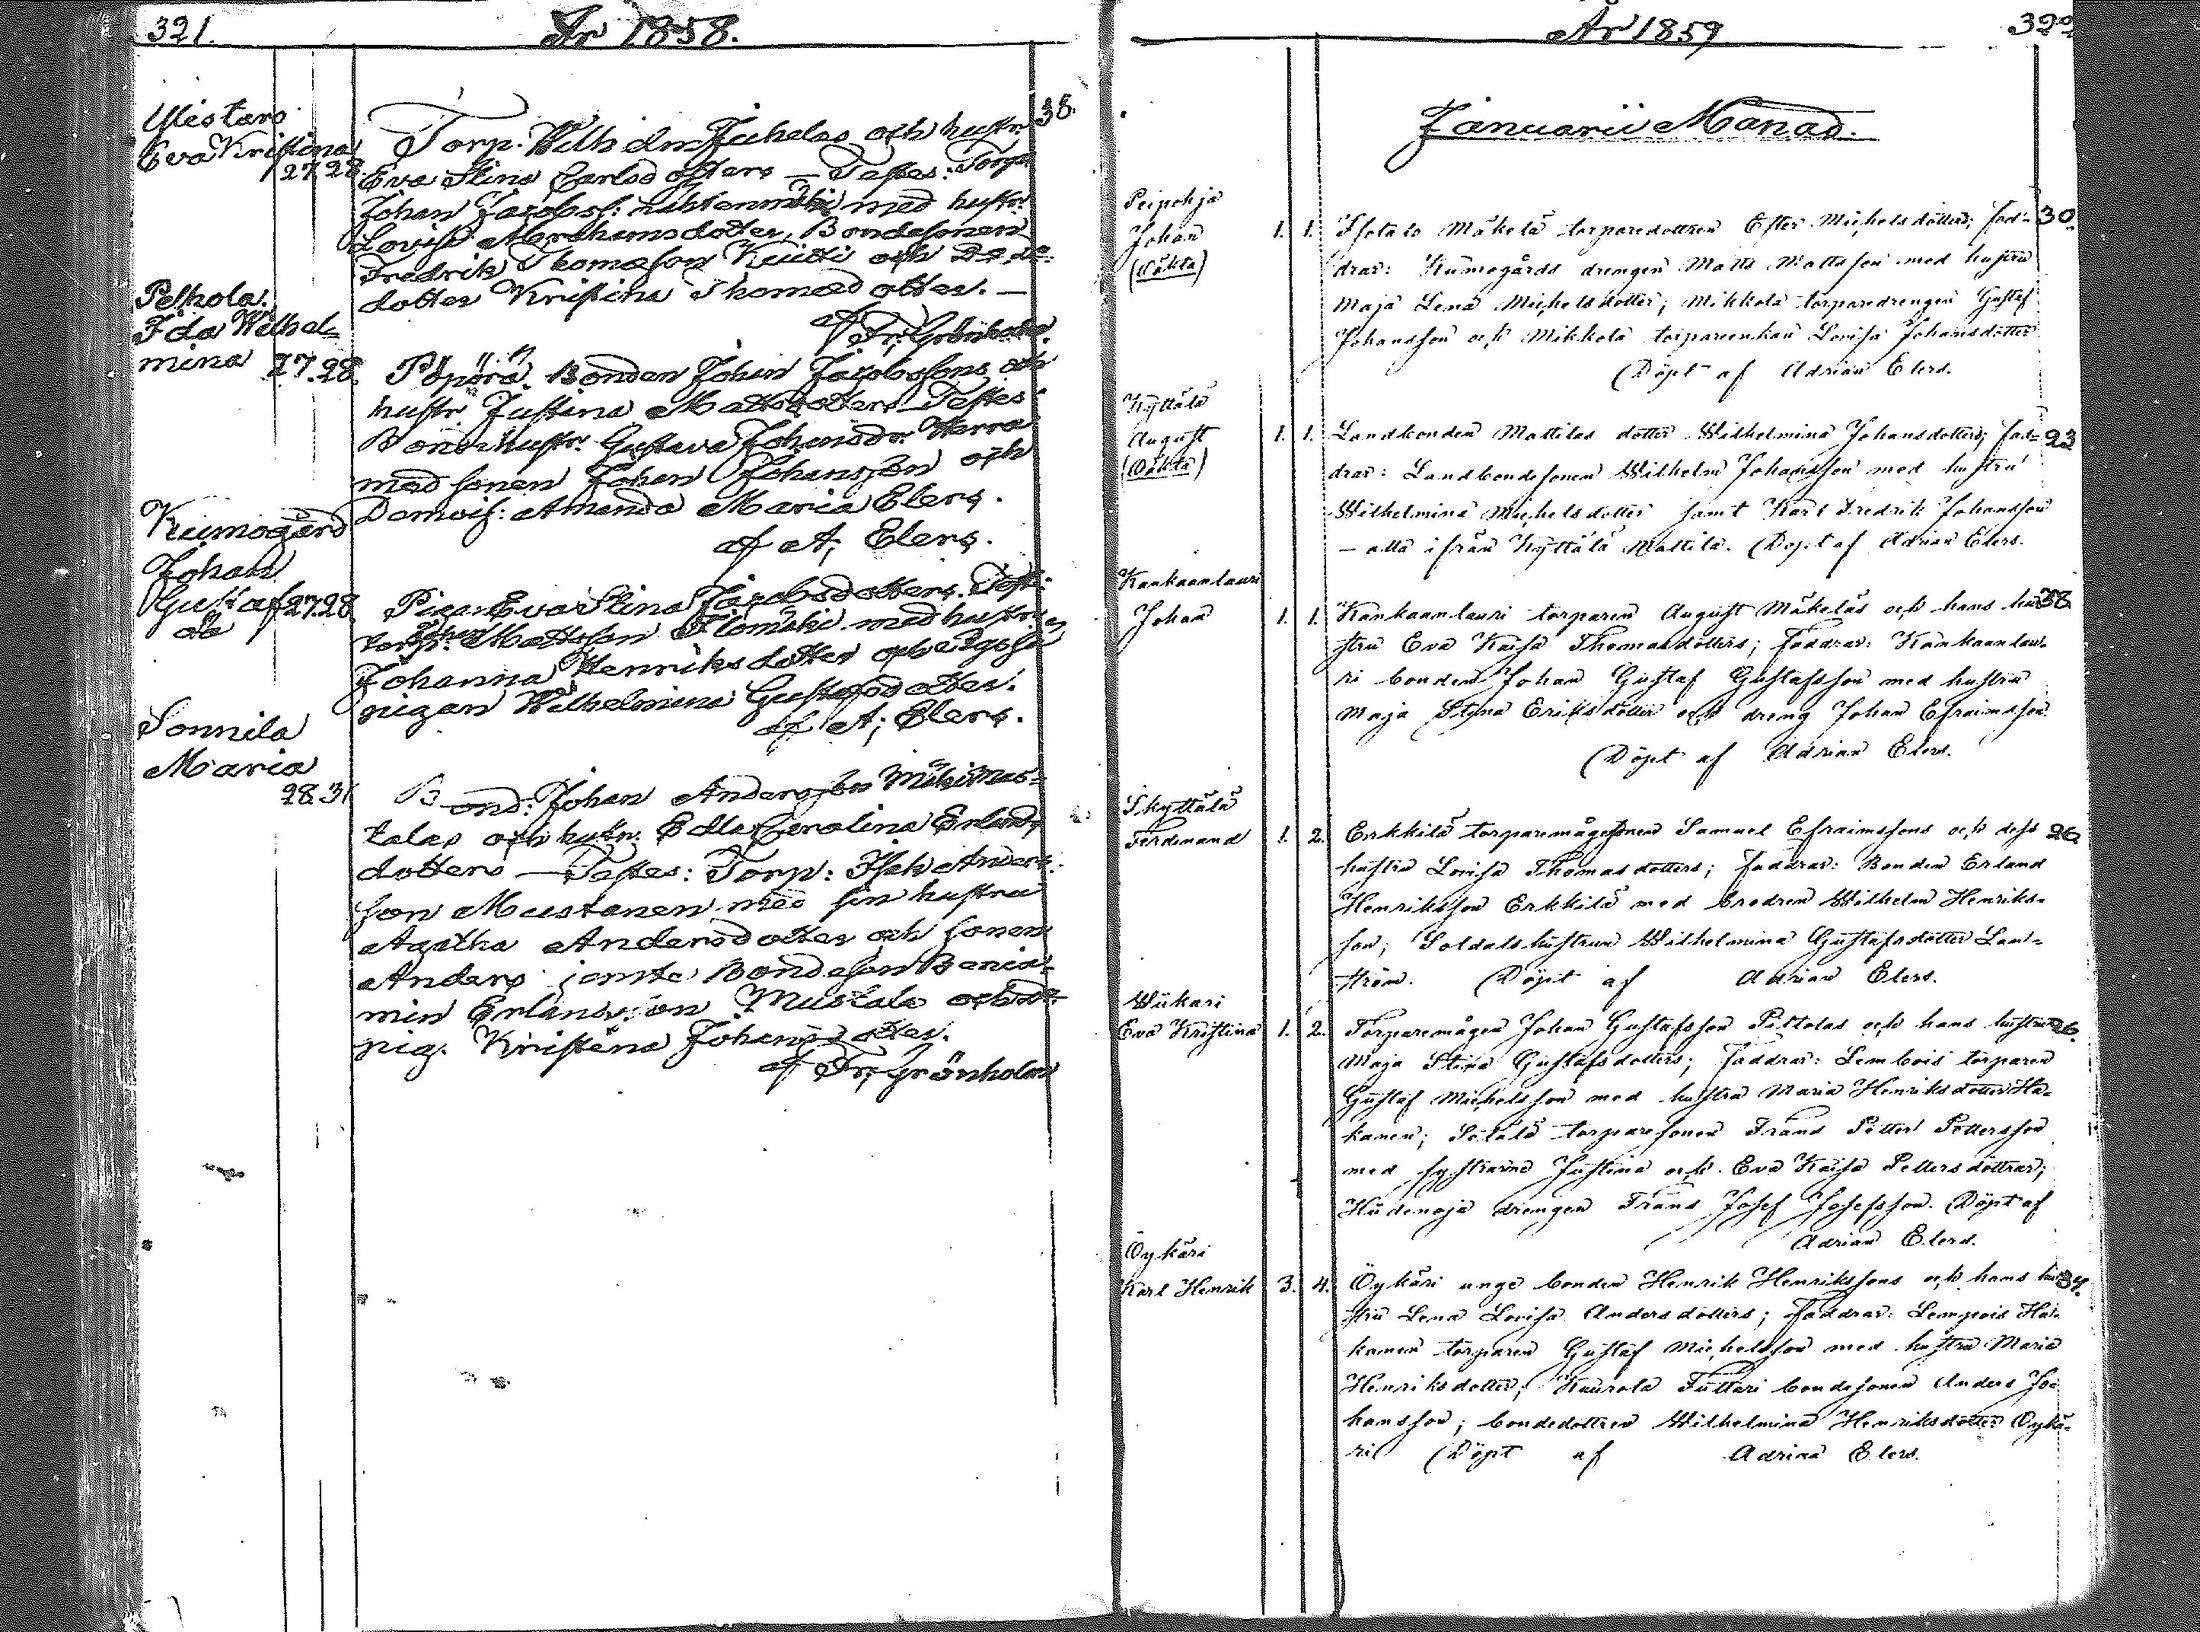 321.
År 1858.
Eva Kristina
27. 28.
38.
Torp. Wilhelm Juhelas och hustr.
Eva Stina Carlsdotters — Testes: Torp.
Johan Jacobss: med hustr.
Lovisa Abrahamsdotter, Bondesonen
Fredrik Thomasson Knuiti och
dotter Kristina Thomasdotter. —
af Fr: Grönholm.
Pelhola.
Ida Wilhel-
mina 27. 28.
Pöpörä. Bonden Johan Jacobssons och
hustr. Justina Mattsdotters Testes
Bond. hustr. Gustava Johansdr. Herra
med sonen Johan Johansson och
Demois: Amanda Maria Elers.
af A; Elers.
Kumogård
Johan
Gustaf 27. 28.
oä
Pigan Eva Stina Jacobsdotters. Test:
Torp. Mattsson med hustr.
Johanna Henriksdotter och
pigan Wilhelmina Gustafsdotter.
af A; Elers.
Sonnila
Maria
28. 31
Bond: Johan Andersson
talas och hustr. Edla Carolina Erlands
dotters — Testes: Torp: Isak Anders-
son Mustanen med sin hustru
Agatha Andersdotter och sonen
Anders jemte Bondeson Benja-
min Erlandsson Mustala och
pig. Kristina Johansdotter.
af Fr; Grönholm
År 1859
322
Januarii Månad.
Peipohja
Johan
(Oäkta)
1. 1.
Isotalo Mäkelä torparedottren Ester Michelsdotters; fad-
30.
drar: Kumogårds drengen Matts Mattsson med hustru
Maja Lena Michelsdotter; Mikkola torparedrengen Gustaf
Johansson och Mikkola torpareenkan Lovisa Johansdotter
(Döpt af Adrian Elers.
Kyttälä
August
(Oäkta)
1. 1.
Landbonden Mattilas dotter Wilhelmina Johansdotters; fad-
23
drar: Landbondesonen Wilhelm Johansson med hustru
Wilhelmina Michelsdotter samt Karl Fredrik Johansson
— alla ifrån Kyttälä Mattila. (Döpt af Adrian Elers.
Kankaanlauri
Johan
1. 1.
Kankaanlauri torparen August Mäkeläs och hans hu-
38.
stru Eva Kaisa Thomasdotters; Faddrar: Kankaanlau-
ri bonden Johan Gustaf Gustafsson med hustru
Maja Stina Eriksdotter och dreng Johan Efraimsson
(Döpt af Adrian Elers.
Skyttälä
Ferdinand
1. 2.
Erkkilä torparemågesonen Samuel Efraimssons och dess
26.
hustru Lovisa Thomasdotters; faddrar: Bonden Erland
Henriksson Erkkilä med brodren Wilhelm Henriks-
son; Soldatshustrun Wilhelmina Gustafsdotter Lan-
ström. (Döpt af Adrian Elers.
Wiikari
Eva Kristina
1. 2.
Torparemågen Johan Gustafsson Peltolas och hans hustru
26.
Maja Stina Gustafsdotters; Faddrar: Lembois torparen
Gustaf Michelsson med hustru Maria Henriksdotter Ha-
kanen; Sotalä torparesonen Frans Petter Pettersson
med systrarne Justina och Eva Kaisa Pettersdöttrar;
Hiidenoja drengen Frans Josef Josefsson. (Döpt af
Adrian Elers.
Öykäri
Karl Henrik
3. 4.
Öykäri unge bonden Henrik Henrikssons och hans hu-
34.
stru Lena Lovisa Andersdotters; Faddrar: Lempois Ha-
kanen torparen Gustaf Michelsson med hustru Maria
Henriksdotter; Kaurola Tuttari bondesonen Anders Jo-
hansson; bondedottren Wilhelmina Henriksdotter Öykä-
ri (Döpt af Adrian Elers.